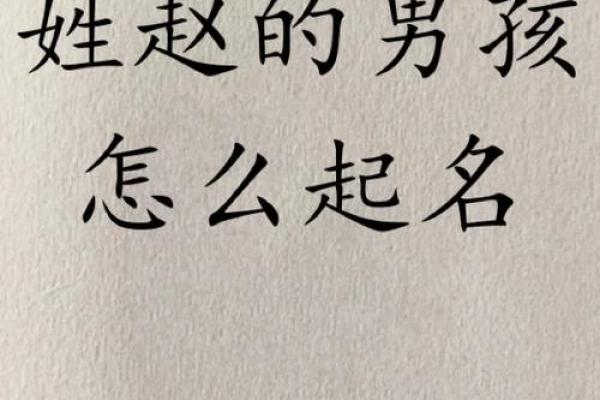 姓赵的男孩
怎么起名